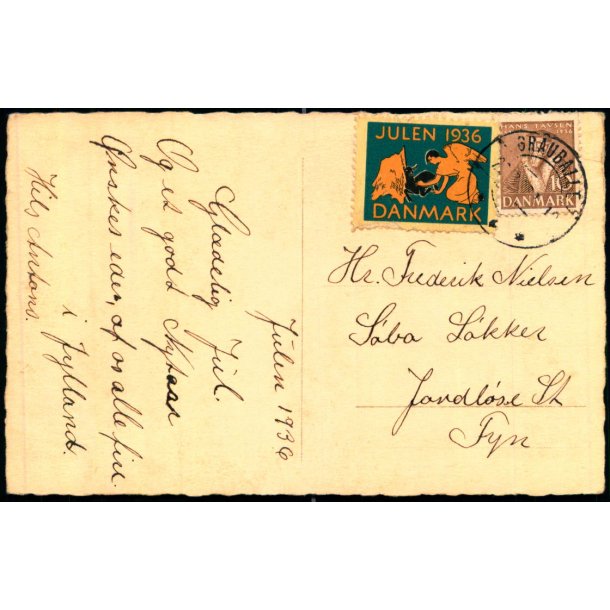 Julen 1936
Glædelig Jul.
Og et godt Nytaar
Ønskes eder, af os alle fire
i Jylland.
Hils Antons.
JULEN 1936
DANMARK
HANS TAVSEN
1936
10
DANMARK
GRAUBALLE
Hr. Frederik Nielsen
Søbo Løkker
Jordløse St
Fyn